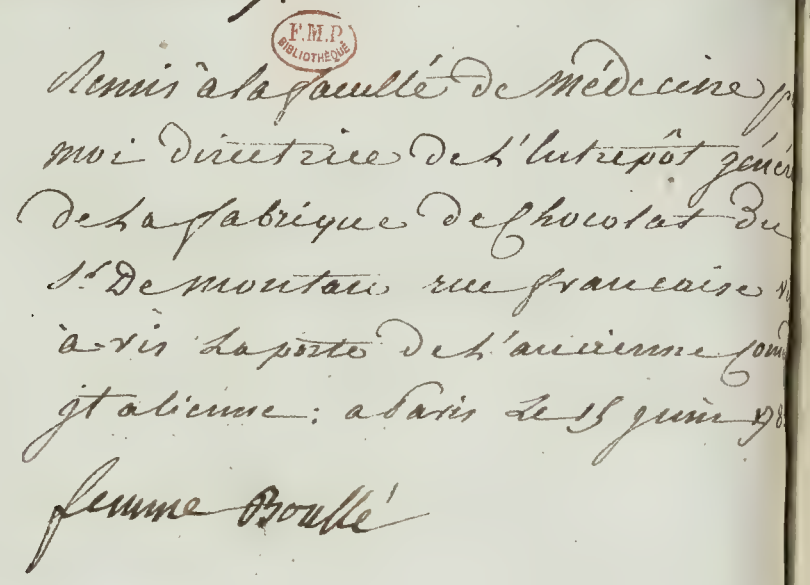 F.M.P.
BIBLIOTHÈQUE
Remis à la faculté de Médecine
moi directrice de L'Entrepôt génér
de La fabrique de Chocolat du
Sr. De montau rue francaise
à-vis La porte de L'ancienne Com
jtalienne : a Paris Le 15 juin 178
femme Boullé